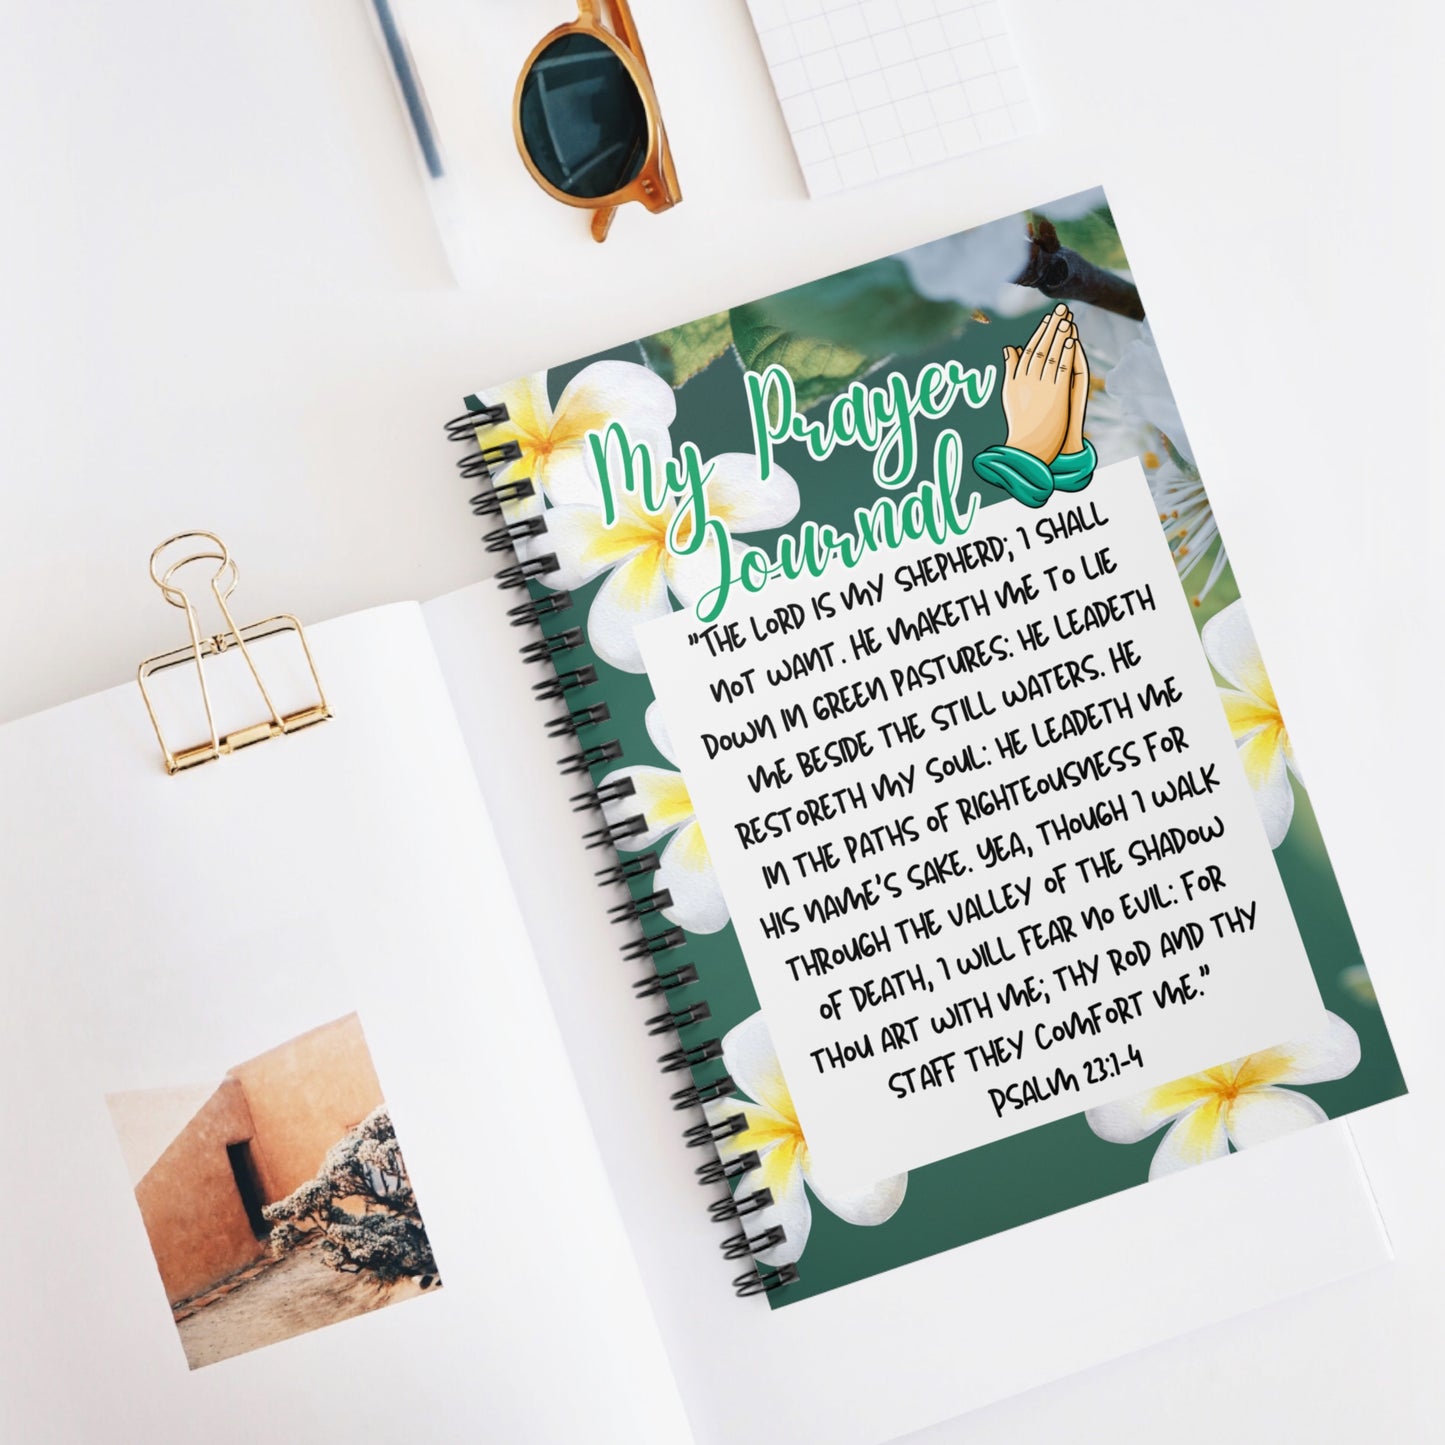 My Prayer
Journal
"THE LORD IS MY SHEPHERD; I SHALL
NOT WANT. HE MAKETH ME TO LIE
DOWN IN GREEN PASTURES: HE LEADETH
ME BESIDE THE STILL WATERS. HE
RESTORETH MY SOUL: HE LEADETH ME
IN THE PATHS OF RIGHTEOUSNESS FOR
HIS NAME'S SAKE. YEA, THOUGH I WALK
THROUGH THE VALLEY OF THE SHADOW
OF DEATH, I WILL FEAR NO EVIL: FOR
THOU ART WITH ME; THY ROD AND THY
STAFF THEY COMFORT ME."
PSALM 23:1-4